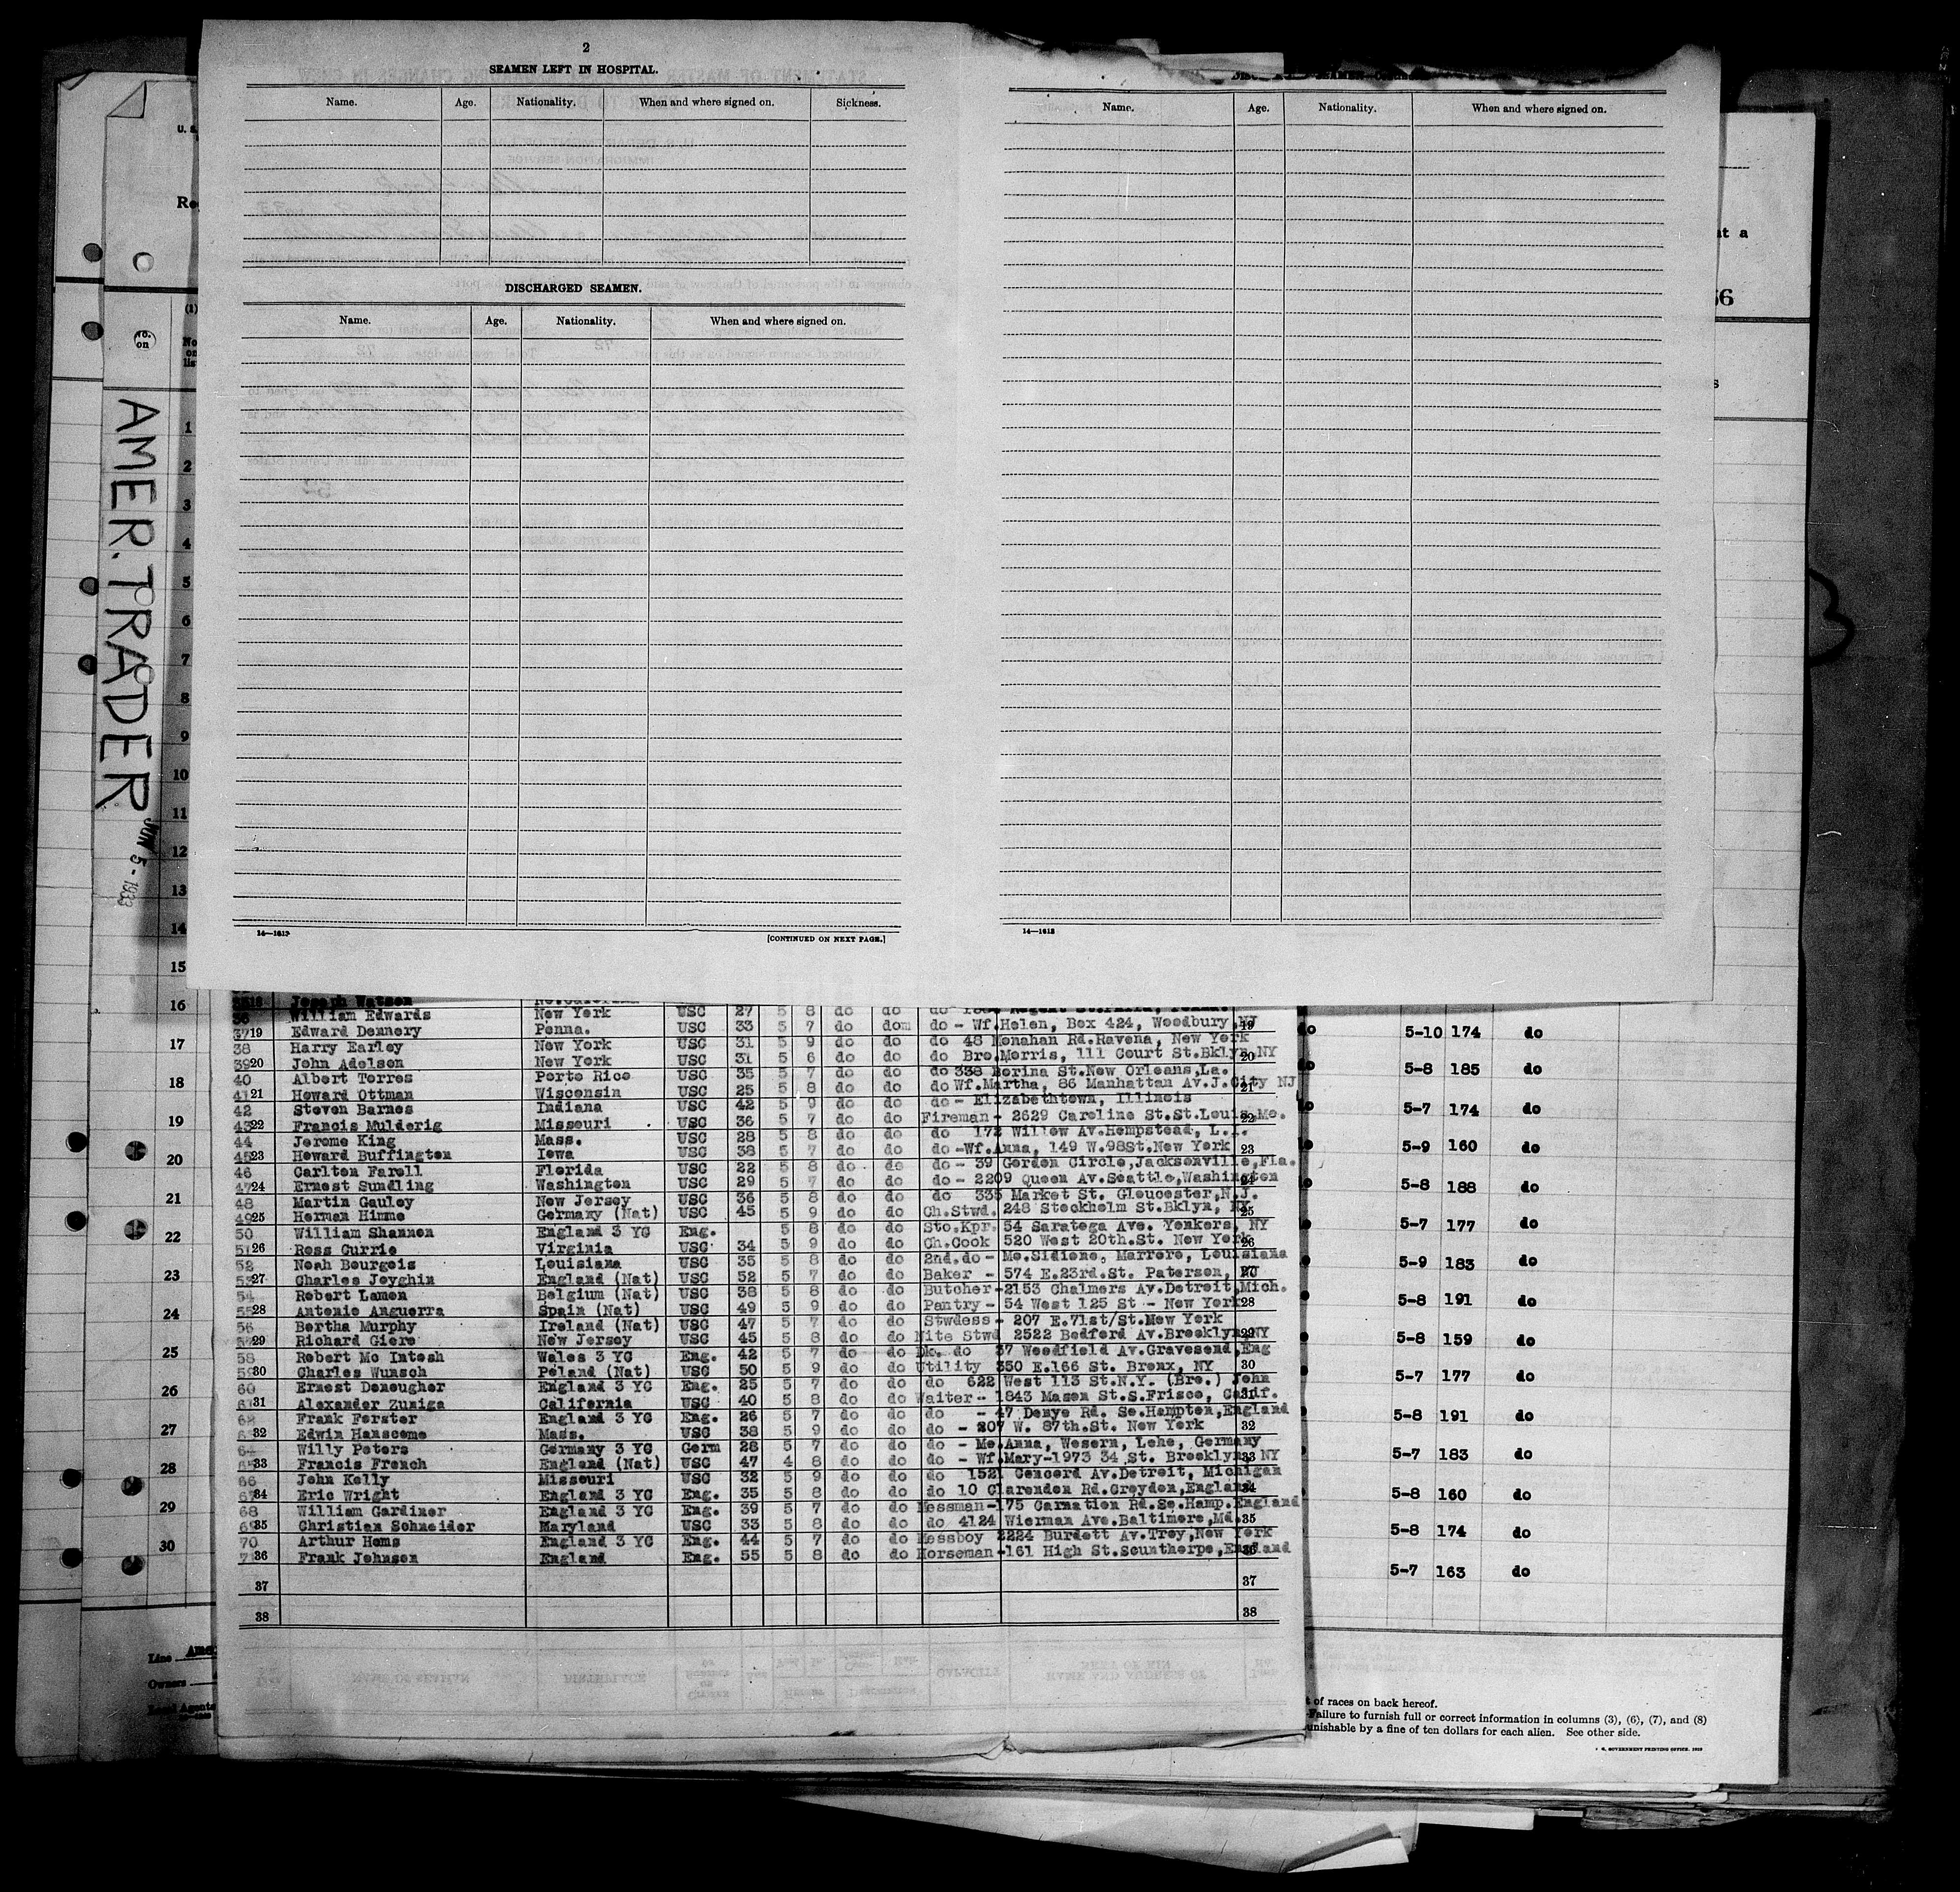 2
SEAMEN LEFT IN HOSPITAL.
Name. Age. Nationality. When and where signed on. Sickness.
DISCHARGED SEAMEN.
Name. Age. Nationality. When and where signed on.
14—1613
[CONTINUED ON NEXT PAGE.]
Name. Age. Nationality. When and where signed on.
14—1613
AMER. TRADER
JUN 5 - 1933
No. on
(1)
No on lis
1
2
3
4
5
6
7
8
9
10
11
12
13
14
15
16
17
18
19
20
21
22
23
24
25
26
27
28
29
30
Line
Owners
Local Agents
18 Joseph Watson
36 William Edwards New York USC 27 5 8 do do do
37 19 Edward Dennery Penna. USC 33 5 7 do dom do - Wf.Helen, Box 424, Woodbury NJ 19
38 Harry Earley New York USC 31 5 9 do do do 48 Monahan Rd.Ravena, New York
39 20 John Adelson New York USC 31 5 6 do do do Bro.Morris, 111 Court St.Bklyn NY 20
40 Albert Torres Porto Rico USC 35 5 7 do do do 338 Dorina St.New Orleans,La.
41 21 Howard Ottman Wisconsin USC 25 5 8 do do do Wf.Martha, 86 Manhattan Av.J.City NJ 21
42 Steven Barnes Indiana USC 42 5 9 do do do - Elizabethtown, Illinois
43 22 Francis Mulderig Missouri USC 36 5 7 do do Fireman - 2629 Caroline St.St.Louis Mo. 22
44 Jerome King Mass. USC 28 5 8 do do do 172 Willow Av.Hempstead, L.I.
45 23 Howard Buffington Iowa USC 38 5 7 do do do -Wf.Anna, 149 W.98St.New York 23
46 Carlton Farell Florida USC 22 5 8 do do do - 39 Gordon Circle,Jacksonville,Fla.
47 24 Ernest Sundling Washington USC 29 5 7 do do do - 2209 Queen Av.Seattle,Washington 24
48 Martin Gauley New Jersey USC 36 5 8 do do do 335 Market St. Gloucester,N.J.
49 25 Herman Hinme Germany (Nat) USC 45 5 9 do do Ch.Stwd. 248 Stockholm St.Bklyn, NY 25
50 William Shannon England 3 YC Eng. 5 8 do do Sto.Kpr. 54 Saratoga Ave. Yonkers, NY
51 26 Ross Currie Virginia USC 34 5 9 do do Ch.Cook 520 West 20th.St. New York 26
52 Noah Bourgeis Louisiana USC 35 5 8 do do 2nd.do - Mo.Sidione, Marrero, Louisiana
53 27 Charles Jeyghin England (Nat) USC 52 5 7 do do Baker - 574 E.23rd.St. Paterson, NJ 27
54 Robert Lamon Belgium (Nat) USC 38 5 8 do do Butcher-2153 Chalmers Av.Detroit,Mich.
55 28 Antonio Anguerra Spain (Nat) USC 49 5 9 do do Pantry - 54 West 125 St - New York 28
56 Bertha Murphy Ireland (Nat) USC 47 5 7 do do Stwdess - 207 E.71st/St.New York
57 29 Richard Giere New Jersey USC 45 5 8 do do Nite Stwd 2522 Bedford Av.Brooklyn NY 29
58 Robert Mc Intosh Wales 3 YC Eng. 42 5 7 do do Dk. do 37 Woodfield Av.Gravesend,Eng
59 30 Charles Wunsch Poland (Nat) USC 50 5 9 do do Utility 350 E.166 St. Bronx, NY 30
60 Ernest Doneugher England 3 YC Eng. 25 5 7 do do do 622 West 113 St.N.Y. (Bro.) John
61 31 Alexander Zuniga California USC 40 5 8 do do Waiter - 1843 Mason St.S.Frisco, Calif. 31
62 Frank Forster England 3 YC Eng. 26 5 7 do do do - 47 Denye Rd. So.Hampton,England
63 32 Edwin Hanscome Mass. USC 38 5 9 do do do - 207 W. 87th.St. New York 32
64 Willy Peters Germany 3 YC Germ 28 5 7 do do do - Mo.Anna, Wesern, Lehe, Germany
65 33 Francis French England (Nat) USC 47 4 8 do do do - Wf.Mary-1973 34 St. Brooklyn NY 33
66 John Kelly Missouri USC 32 5 9 do do do 1521 Concord Av.Detroit, Michigan
67 34 Eric Wright England 3 YC Eng. 35 5 8 do do do 10 Clarendon Rd.Croydon,England 34
68 William Gardiner England 3 YC Eng. 39 5 7 do do Messman-175 Carnation Rd.So.Hamp.England
69 35 Christian Schneider Maryland USC 33 5 8 do do do 4124 Wierman Ave.Baltimore,Md. 35
70 Arthur Hems England 3 YC Eng. 44 5 7 do do Messboy 2224 Burdett Av.Troy,New York
71 36 Frank Johnson England Eng. 55 5 8 do do Horseman-161 High St.Scunthorpe,England 36
37 37
38 38
at a
66
s
do 5-10 174 do
do 5-8 185 do
do 5-7 174 do
do 5-9 160 do
do 5-8 188 do
5-7 177 do
5-9 183 do
5-8 191 do
5-8 159 do
5-7 177 do
5-8 191 do
5-7 183 do
5-8 160 do
5-8 174 do
5-7 163 do
t of races on back hereof.
Failure to furnish full or correct information in columns (3), (6), (7), and (8)
unishable by a fine of ten dollars for each alien. See other side.
GOVERNMENT PRINTING OFFICE